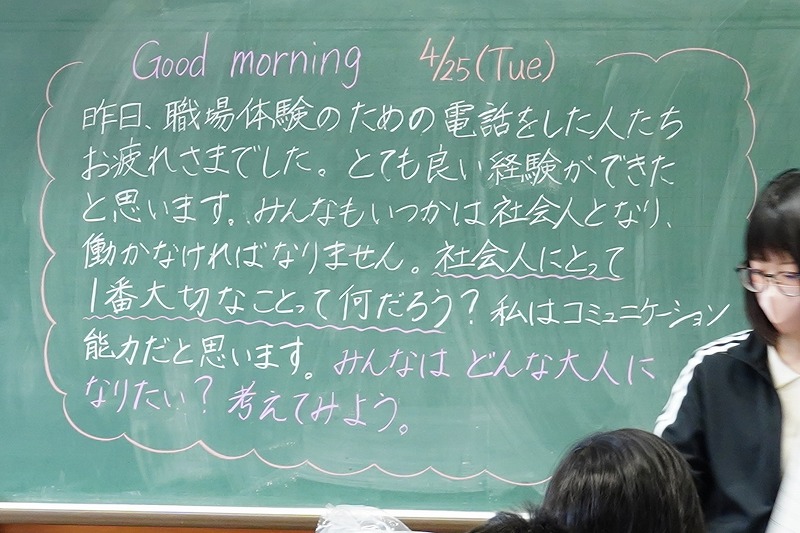 Good morning 4/25(Tue)
昨日、職場体験のための電話をした人たち
お疲れさまでした。とても良い経験ができた
と思います。みんなもいつかは社会人となり、
働かなければなりません。社会人にとって
1番大切なことって何だろう？私はコミュニケーション
能力だと思います。みんなはどんな大人に
なりたい？考えてみよう。